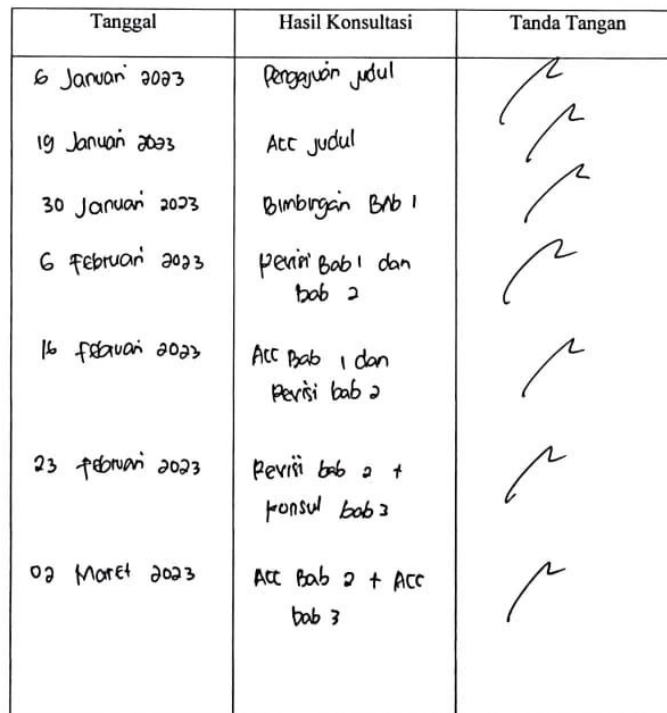 Tanggal Hasil Konsultasi Tanda Tangan
6 Januari 2023 Pengajuan judul
19 Januari 2023 Acc judul
30 Januari 2023 Bimbingan BAb 1
6 Februari 2023 Revisi Bab 1 dan
bab 2
16 Februari 2023 Acc Bab 1 dan
Revisi bab 2
23 Februari 2023 Revisi bab 2 +
konsul bab 3
02 Maret 2023 Acc Bab 2 + Acc
bab 3